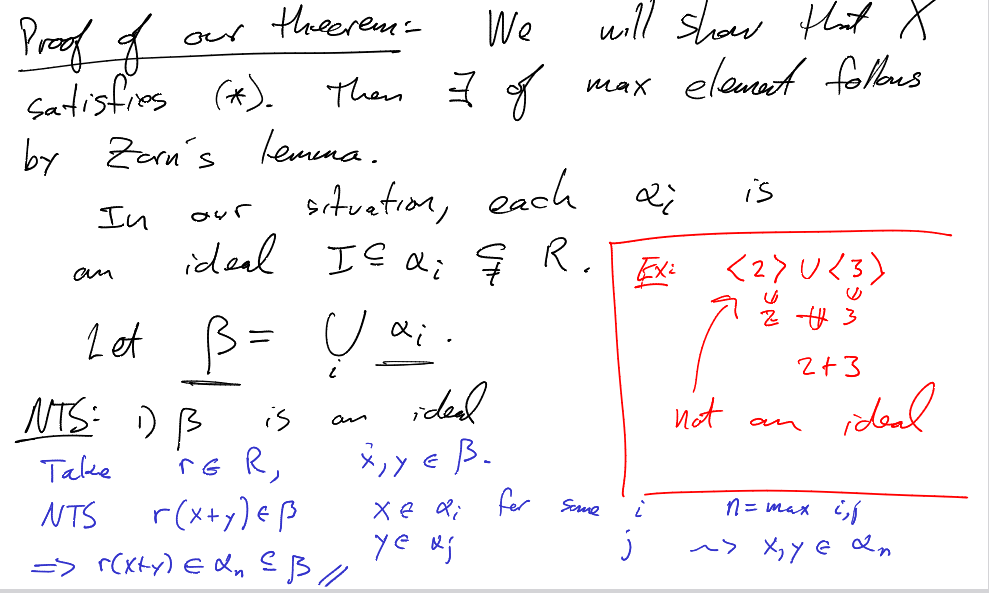 Proof of our theorem:
We will show that X
satisfies (*). Then ∃ of max element follows
by Zorn's lemma.
In our situation, each αᵢ is
an ideal I ⊆ αᵢ ⊊ R.
Let β = ∪ᵢ αᵢ.
NTS: i) β is an ideal
Take r ∈ R, x, y ∈ β.
NTS r(x+y) ∈ β x ∈ αᵢ for some i n = max i,j
y ∈ αⱼ j ~> x, y ∈ αₙ
=> r(x+y) ∈ αₙ ⊆ β //
Ex: <2> ∪ <3>
2 + 3
2+3
not an ideal